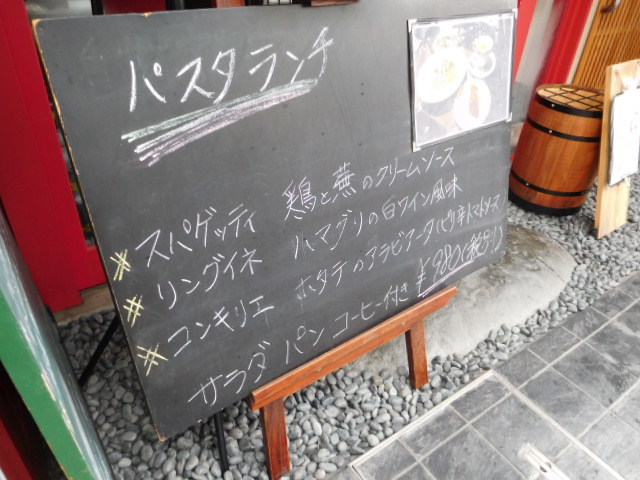 パスタランチ
※スパゲッティ 鶏と蕪のクリームソース
※リングイネ ハマグリの白ワイン風味
※コンキリエ ホタテのアラビアータ(ピリ辛トマトソース)
サラダ パン コーヒー付き ¥980(税別)